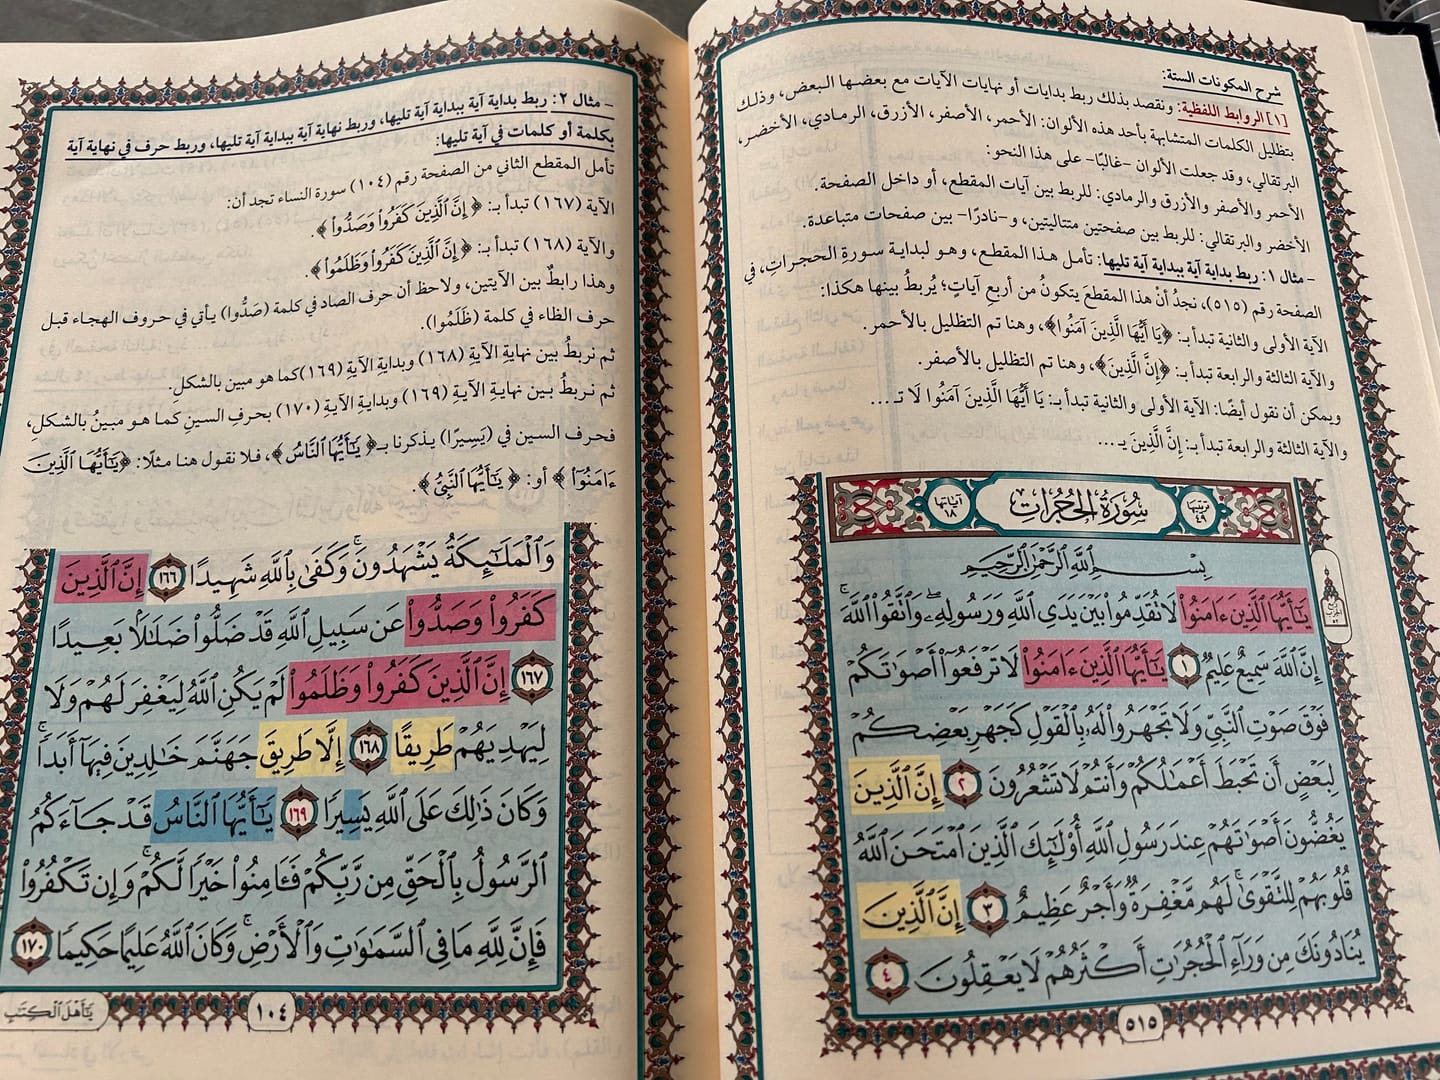 شرح المكونات الستة:
[١] الروابط اللفظية: ونقصد بذلك ربط بدايات أو نهايات الآيات مع بعضها البعض، وذلك
بتظليل الكلمات المتشابهة بأحد هذه الألوان: الأحمر، الأصفر، الأزرق، الرمادي، الأخضر،
البرتقالي، وقد جعلت الألوان -غالبًا- على هذا النحو:
الأحمر والأصفر والأزرق والرمادي: للربط بين آيات المقطع، أو داخل الصفحة.
الأخضر والبرتقالي: للربط بين صفحتين متتاليتين، و-نادرًا- بين صفحات متباعدة.
- مثال ١: ربط بداية آية ببداية آية تليها: تأمل هذا المقطع، وهو لبداية سورةِ الحجراتِ، في
الصفحة رقم (٥١٥)، نجدُ أنْ هذا المقطعَ يتكونُ من أربعِ آياتٍ؛ يُربطُ بينها هكذا:
الآية الأولى والثانية تبدأ بـ: ﴿يَا أَيُّهَا الَّذِينَ آمَنُوا﴾، وهنا تم التظليل بالأحمر.
والآية الثالثة والرابعة تبدأ بـ: ﴿إِنَّ الَّذِينَ﴾، وهنا تم التظليل بالأصفر.
ويمكن أن نقول أيضًا: الآية الأولى والثانية تبدأ بـ: يَا أَيُّهَا الَّذِينَ آمَنُوا لَا تـ ....
والآية الثالثة والرابعة تبدأ بـ: إِنَّ الَّذِينَ يـ ....
ترتيبها ٤٩ سُورَةُ الحُجُرَاتِ آياتها ١٨
بِسْمِ ٱللَّهِ ٱلرَّحْمَٰنِ ٱلرَّحِيمِ
يَٰٓأَيُّهَا ٱلَّذِينَ ءَامَنُوا۟ لَا تُقَدِّمُوا۟ بَيْنَ يَدَىِ ٱللَّهِ وَرَسُولِهِۦ ۖ وَٱتَّقُوا۟ ٱللَّهَ ۚ
إِنَّ ٱللَّهَ سَمِيعٌ عَلِيمٌ ١ يَٰٓأَيُّهَا ٱلَّذِينَ ءَامَنُوا۟ لَا تَرْفَعُوٓا۟ أَصْوَٰتَكُمْ
فَوْقَ صَوْتِ ٱلنَّبِىِّ وَلَا تَجْهَرُوا۟ لَهُۥ بِٱلْقَوْلِ كَجَهْرِ بَعْضِكُمْ
لِبَعْضٍ أَن تَحْبَطَ أَعْمَٰلُكُمْ وَأَنتُمْ لَا تَشْعُرُونَ ٢ إِنَّ ٱلَّذِينَ
يَغُضُّونَ أَصْوَٰتَهُمْ عِندَ رَسُولِ ٱللَّهِ أُو۟لَٰٓئِكَ ٱلَّذِينَ ٱمْتَحَنَ ٱللَّهُ
قُلُوبَهُمْ لِلتَّقْوَىٰ ۚ لَهُم مَّغْفِرَةٌ وَأَجْرٌ عَظِيمٌ ٣ إِنَّ ٱلَّذِينَ
يُنَادُونَكَ مِن وَرَآءِ ٱلْحُجُرَٰتِ أَكْثَرُهُمْ لَا يَعْقِلُونَ ٤
٥١٥
- مثال ٢: ربط بداية آية ببداية آية تليها، وربط نهاية آية ببداية آية تليها، وربط حرف في نهاية آية
بكلمة أو كلمات في آية تليها:
تأمل المقطع الثاني من الصفحة رقم (١٠٤) سورة النساء تجد أن:
الآية (١٦٧) تبدأ بـ: ﴿ إِنَّ ٱلَّذِينَ كَفَرُوا۟ وَصَدُّوا۟ ﴾.
والآية (١٦٨) تبدأ بـ: ﴿ إِنَّ ٱلَّذِينَ كَفَرُوا۟ وَظَلَمُوا۟ ﴾.
وهذا رابطٌ بين الآيتين، ولاحظ أن حرف الصاد في كلمة (صَدُّوا) يأتي في حروف الهجاء قبل
حرف الظاء في كلمة (ظَلَمُوا).
ثم نربطُ بين نهايةِ الآيةِ (١٦٨) وبدايةِ الآيةِ (١٦٩) كما هو مبين بالشكل.
ثم نربطُ بين نهايةِ الآيةِ (١٦٩) وبدايةِ الآيةِ (١٧٠) بحرفِ السينِ كما هو مبينٌ بالشكلِ،
فحرف السين في (يَسِيرًا) يذكرنا بـ﴿ يَٰٓأَيُّهَا النَّاسُ ﴾، فلا نقول هنا مثلًا: ﴿يَٰٓأَيُّهَا ٱلَّذِينَ
ءَامَنُوٓا۟ ﴾ أو: ﴿ يَٰٓأَيُّهَا ٱلنَّبِىُّ ﴾.
وَٱلْمَلَٰٓئِكَةُ يَشْهَدُونَ ۚ وَكَفَىٰ بِٱللَّهِ شَهِيدًا ١٦٦ إِنَّ ٱلَّذِينَ
كَفَرُوا۟ وَصَدُّوا۟ عَن سَبِيلِ ٱللَّهِ قَدْ ضَلُّوا۟ ضَلَٰلًۢا بَعِيدًا
١٦٧ إِنَّ ٱلَّذِينَ كَفَرُوا۟ وَظَلَمُوا۟ لَمْ يَكُنِ ٱللَّهُ لِيَغْفِرَ لَهُمْ وَلَا
لِيَهْدِيَهُمْ طَرِيقًا ١٦٨ إِلَّا طَرِيقَ جَهَنَّمَ خَٰلِدِينَ فِيهَآ أَبَدًا ۚ
وَكَانَ ذَٰلِكَ عَلَى ٱللَّهِ يَسِيرًا ١٦٩ يَٰٓأَيُّهَا ٱلنَّاسُ قَدْ جَآءَكُمُ
ٱلرَّسُولُ بِٱلْحَقِّ مِن رَّبِّكُمْ فَـَٔامِنُوا۟ خَيْرًا لَّكُمْ ۚ وَإِن تَكْفُرُوا۟
فَإِنَّ لِلَّهِ مَا فِى ٱلسَّمَٰوَٰتِ وَٱلْأَرْضِ ۚ وَكَانَ ٱللَّهُ عَلِيمًا حَكِيمًا ١٧٠
١٠٤
يَٰٓأَهْلَ ٱلْكِتَٰبِ